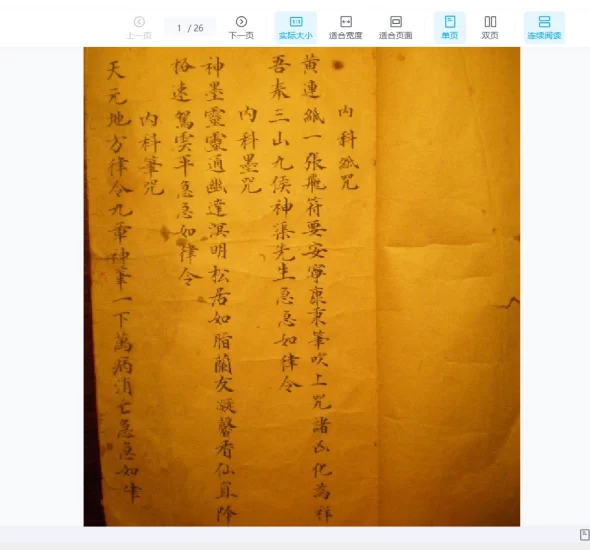 上一页
1 / 26
下一页
实际大小
适合宽度
适合页面
单页
双页
连续阅读
内科紙咒
黄連紙一張飛符要安寧東秉筆吹上咒諸凶化為祥
吾奉三山九侯神渠先生急急如律令
内科墨咒
神墨靈靈通幽達溟明松居如脂蘭友凝馨香仙宜降
格速駕雲平急急如律令
内科筆咒
天元地方律令九章神筆一下萬病消亡急急如律